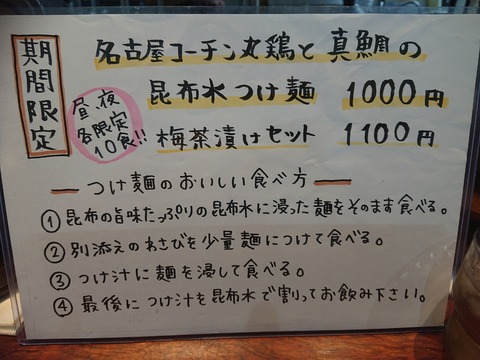 期間限定
名古屋コーチン丸鶏と真鯛の
昆布水つけ麺 1000円
昼、夜
各限定
10食!!
梅茶漬けセット 1100円
つけ麺のおいしい食べ方
①昆布の旨味たっぷりの昆布水に浸った麺をそのまま食べる。
②別添えのわさびを少量麺につけて食べる。
③つけ汁に麺を浸して食べる。
④最後につけ汁を昆布水で割ってお飲み下さい。